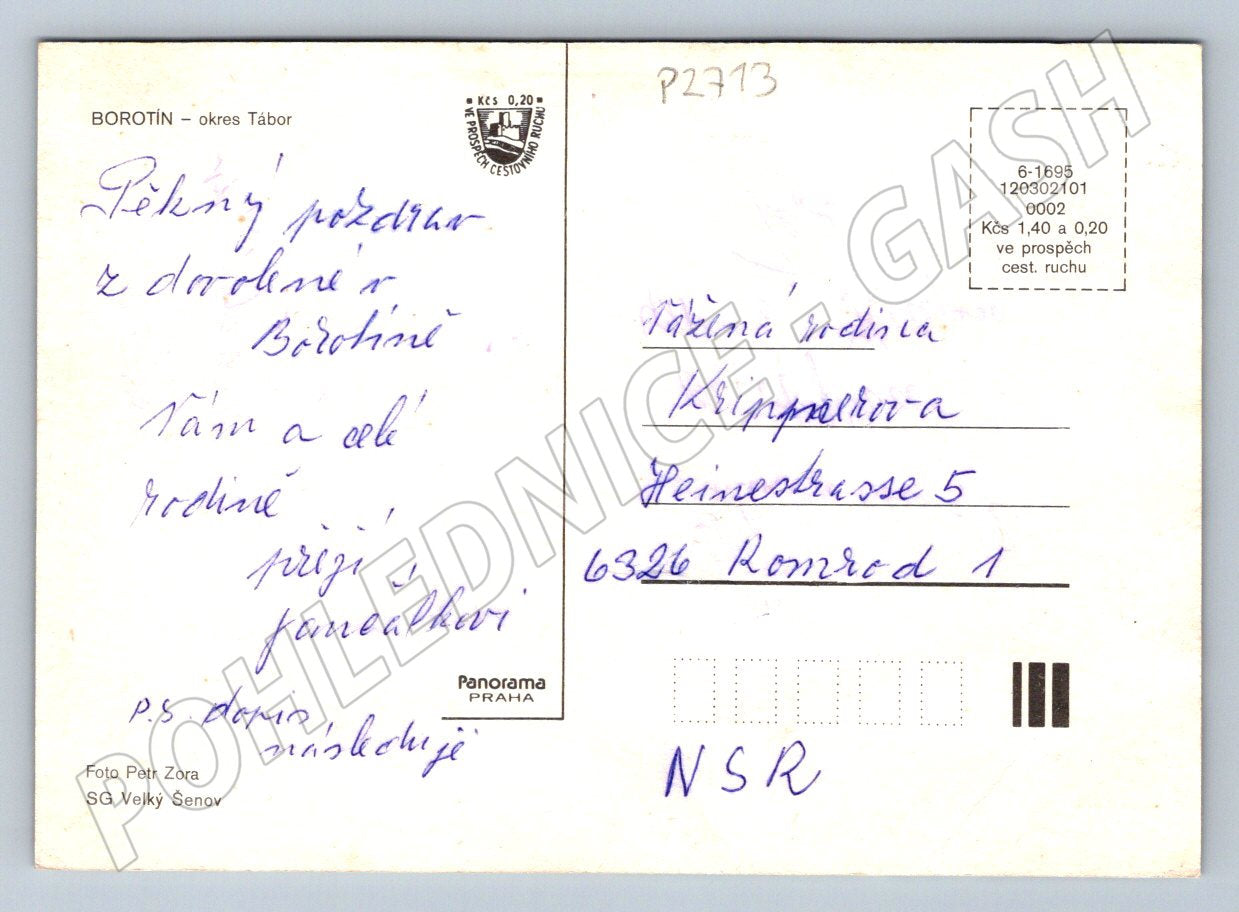 P2713
BOROTÍN – okres Tábor
Kčs 0,20
VE PROSPĚCH CESTOVNÍHO RUCHU
Pěkný pozdrav
z dovolené v
Borotíně
Vám a celé
rodině
přejí
Jančálkovi
P.S. dopis
následuje
Panorama
PRAHA
Foto Petr Zora
SG Velký Šenov
6-1695
120302101
0002
Kčs 1,40 a 0,20
ve prospěch
cest. ruchu
Vážená rodina
Heinestrasse 5
6326 Romrod 1
NSR
POHLEDNICE - GASH